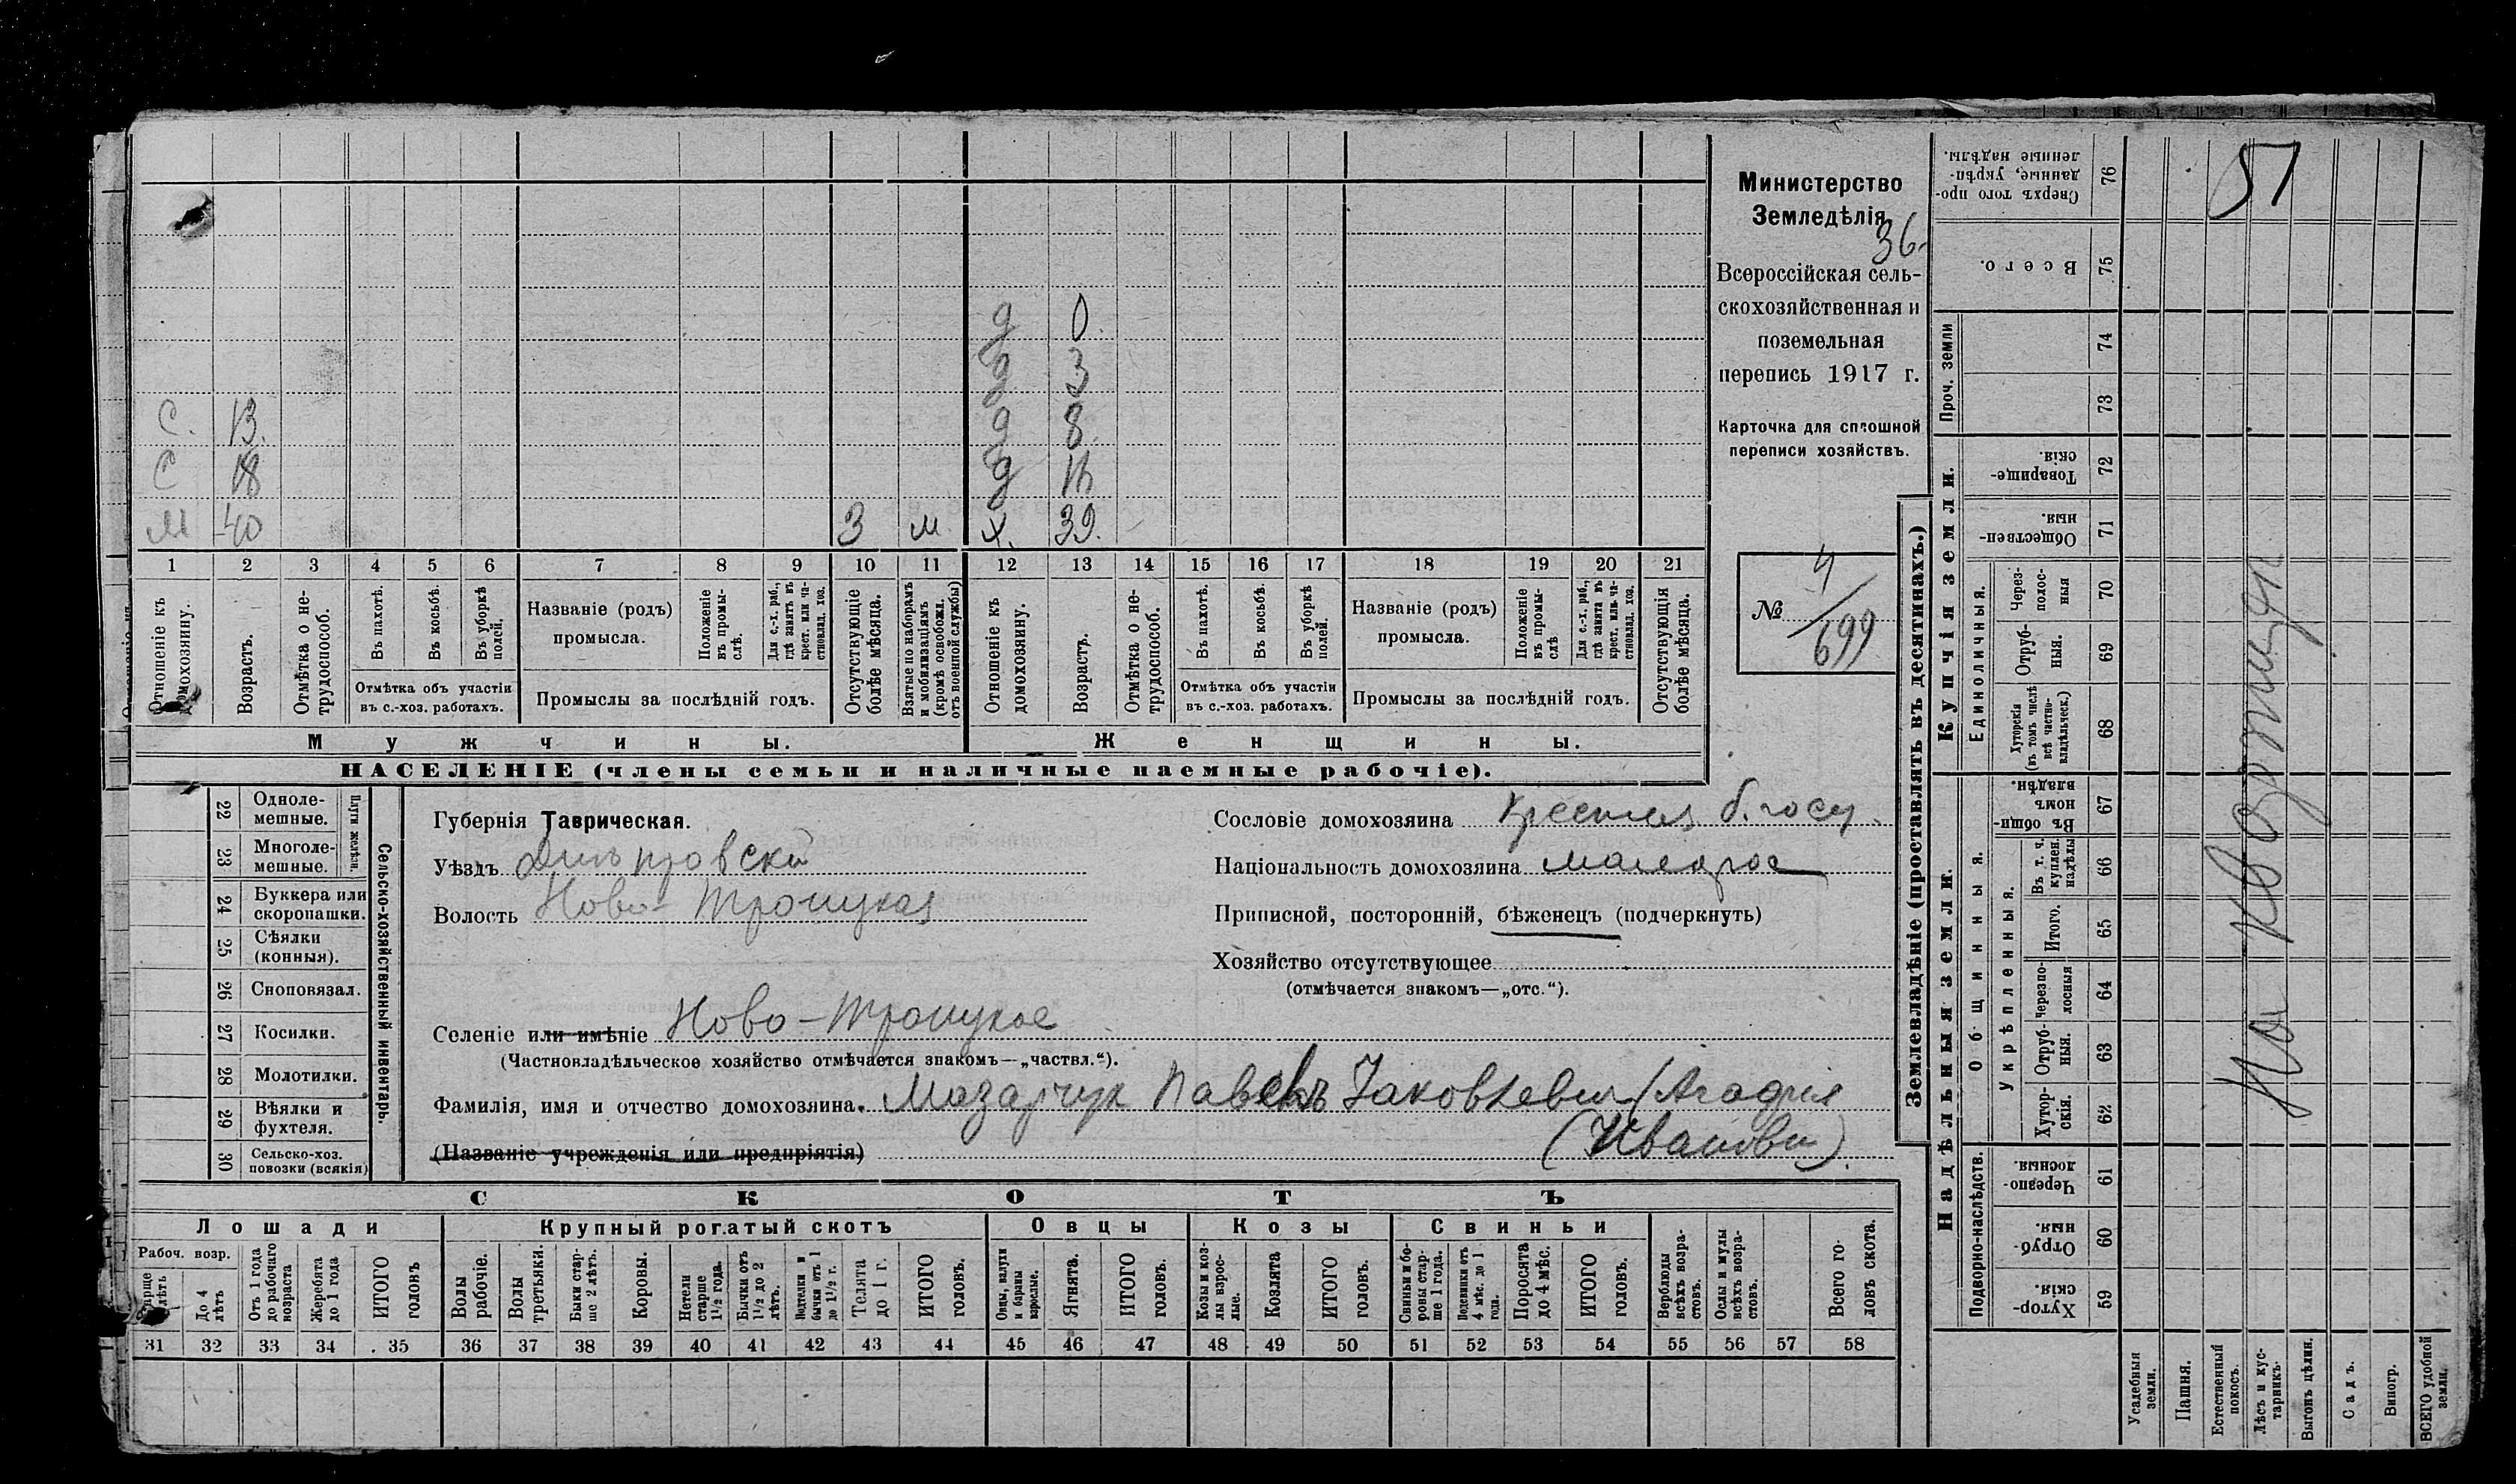 Министерство
Земледѣлія
36.
Всероссійская сель-
скохозяйственная и
поземельная
перепись 1917 г.
Карточка для сплошной
переписи хозяйствъ.
№ 4/699
д 0.
д 3
С. 13. д 8.
С 18 д
М 40 3 м х. 39.
1 2 3 4 5 6 7 8 9 10 11 12 13 14 15 16 17 18 19 20 21
Отношеніе къ домохозяину.
Возрастъ.
Отмѣтка о не-трудоспособ.
Въ пахотѣ.
Въ косьбѣ.
Въ уборкѣ полей.
Отмѣтка объ участіи
въ с.-хоз. работахъ.
Названіе (родъ)
промысла.
Положеніе въ промы-слѣ.
Для с.-х. раб., гдѣ занятъ въ крест. или ча-стновлад. хоз.
Промыслы за послѣдній годъ.
Отсутствующіе болѣе мѣсяца.
Взятые по наборамъ и мобилизаціямъ (кромѣ освобожд. отъ военной службы)
Отношеніе къ домохозяину.
Возрастъ.
Отмѣтка о не-трудоспособ.
Въ пахотѣ.
Въ косьбѣ.
Въ уборкѣ полей.
Отмѣтка объ участіи
въ с.-хоз. работахъ.
Названіе (родъ)
промысла.
Положеніе въ промы-слѣ
Для с.-х. раб., гдѣ занята въ крест. или ча-стновлад. хоз.
Промыслы за послѣдній годъ.
Отсутствующія болѣе мѣсяца.
Мужчины. Женщины.
НАСЕЛЕНІЕ (члены семьи и наличные наемные рабочіе).
Сельско-хозяйственный инвентарь.
Плуги желѣзн.
22 Одноле-мешные.
23 Многоле-мешные.
24 Буккера или скоропашки.
25 Сѣялки (конныя).
26 Сноповязал.
27 Косилки.
28 Молотилки.
29 Вѣялки и фухтеля.
30 Сельско-хоз. повозки (всякія)
Губернія Таврическая.
Уѣздъ Днѣпровскій
Волость Ново-Троицкая
Селеніе или имѣніе Ново-Троицкое
(Частновладѣльческое хозяйство отмѣчается знакомъ—„частвл.“).
Сословіе домохозяина Крестья б. госу.
Національность домохозяина малорос
Приписной, посторонній, бѣженецъ (подчеркнуть)
Хозяйство отсутствующее
(отмѣчается знакомъ—„отс.“).
Фамилія, имя и отчество домохозяина. Мазарчук Павелъ Яковлевич
(Названіе учрежденія или предпріятія) (Иванови).
СКОТЪ
Лошади Крупный рогатый скотъ Овцы Козы Свиньи
Рабоч. возр.
Старше лѣтъ
До 4 лѣтъ
Отъ 1 года до рабочаго возраста
Жеребята до 1 года
ИТОГО головъ
Волы рабочіе.
Волы третьяки.
Быки стар-ше 2 лѣтъ.
Коровы.
Нетели старше 1½ года.
Бычки отъ 1½ до 2 лѣтъ.
Подтелки и бычки отъ 1 до 1½ г.
Телята до 1 г.
ИТОГО головъ.
Овцы, валухи и бараны взрослые.
Ягнята.
ИТОГО головъ.
Козы и коз-лы взрос-лые.
Козлята
ИТОГО головъ.
Свиньи и бо-ровы стар-ше 1 года.
Подсвинки отъ 4 мѣс. до 1 года.
Поросята до 4 мѣс.
ИТОГО головъ.
Верблюды всѣхъ возра-стовъ.
Ослы и мулы всѣхъ возра-стовъ.
Всего го-ловъ скота.
31 32 33 34 35 36 37 38 39 40 41 42 43 44 45 46 47 48 49 50 51 52 53 54 55 56 57 58
Землевладѣніе (проставлять въ десятинахъ.)
51
76 Сверхъ того про-данные, укрѣп-ленные надѣлы.
75 Всего.
74
73
Проч. земли
Купчія земли.
72 Товарище-скія.
71 Обществен-ныя.
Единоличныя.
70 Через-полос-ныя
69 Отруб-ныя.
68 Хуторскія (въ томъ числѣ всѣ частно-владѣльческ.)
Надѣльныя земли.
Общинныя.
67 Въ общин-номъ владѣн.
Укрѣпленныя.
66 Въ т. ч. куплен. надѣлы
65 Итого.
64 Черезпо-лосныя
63 Отруб-ныя.
62 Хутор-скія.
Подворно-наслѣдств.
61 Черезпо-лосныя.
60 Отруб-ныя.
59 Хутор-скія.
Усадебныя земли.
Пашня.
Естественный покосъ.
Лѣсъ и кус-тарникъ.
Выгонъ цѣлин.
Садъ.
Виногр.
ВСЕГО удобной земли.
На